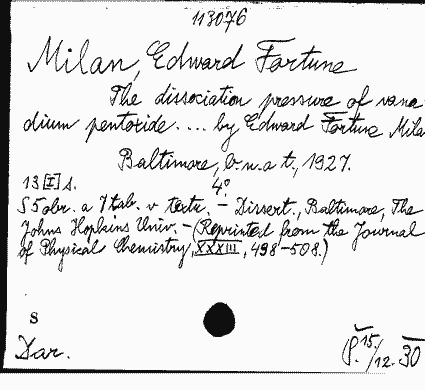 113076
Milan, Edward Fortune
The dissociation pressure of vana
dium pentoxide.... by Edward Fortune Mila
Baltimore, b.n.a t., 1927.
13 [I] s. 4°.
S 5 obr. a 7 tab. v textu. – Dissert., Baltimore, The
Johns Hopkins Univ. – (Reprinted from the Journal
of Physical Chemistry, XXXIII, 498–508.)
S
Dar.
15./12. 30